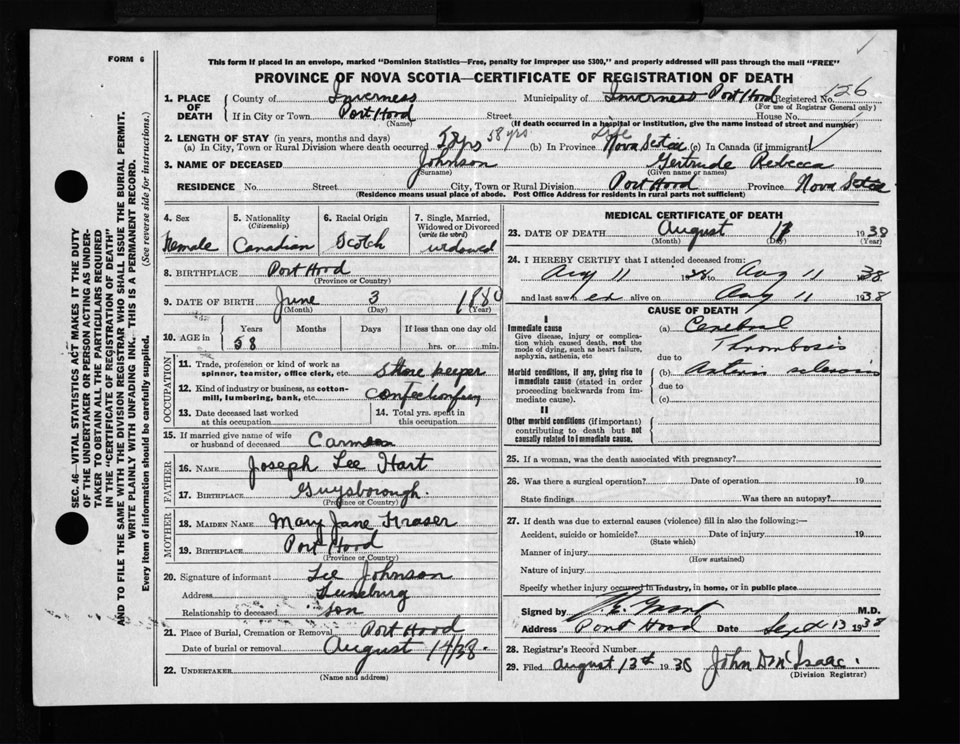 FORM 6
This form if placed in an envelope, marked "Dominion Statistics—Free, penalty for improper use $300," and properly addressed will pass through the mail "FREE"
PROVINCE OF NOVA SCOTIA—CERTIFICATE OF REGISTRATION OF DEATH
1. PLACE OF DEATH { County of Inverness Municipality of Inverness Port Hood Registered No. 126
(For use of Registrar General only)
If in City or Town Port Hood Street House No.
(Name) (If death occurred in a hospital or institution, give the name instead of street and number)
2. LENGTH OF STAY (in years, months and days) 58 yrs Life
(a) In City, Town or Rural Division where death occurred 58 yrs (b) In Province Nova Scotia (c) In Canada (if immigrant)
3. NAME OF DECEASED Johnson Gertrude Rebecca
(Surname) (Given name or names)
RESIDENCE No. Street City, Town or Rural Division Port Hood Province Nova Scotia
(Residence means usual place of abode. Post Office Address for residents in rural parts not sufficient)
4. Sex Female
5. Nationality (Citizenship) Canadian
6. Racial Origin Scotch
7. Single, Married, Widowed or Divorced (write the word) widowed
8. BIRTHPLACE Port Hood
(Province or Country)
9. DATE OF BIRTH June 3 1880
(Month) (Day) (Year)
10. AGE in { Years Months Days If less than one day old
58 hrs. or min.
OCCUPATION
11. Trade, profession or kind of work as spinner, teamster, office clerk, etc. Store keeper
12. Kind of industry or business, as cotton-mill, lumbering, bank, etc. Confectionery
13. Date deceased last worked at this occupation
14. Total yrs. spent in this occupation
15. If married give name of wife or husband of deceased
FATHER
16. NAME Joseph Lee Hart
17. BIRTHPLACE Guysborough
(Province or Country)
MOTHER
18. MAIDEN NAME Mary Jane Fraser
19. BIRTHPLACE Port Hood
(Province or Country)
20. Signature of informant Lee Johnson
Address Lunenburg
Relationship to deceased son
21. Place of Burial, Cremation or Removal Port Hood
Date of burial or removal August 14/38.
22. UNDERTAKER
(Name and address)
MEDICAL CERTIFICATE OF DEATH
23. DATE OF DEATH August 1938
(Month) (Day) (Year)
24. I HEREBY CERTIFY that I attended deceased from:
Aug 11 1938 to Aug 11 1938
and last saw er alive on Aug 11 1938
CAUSE OF DEATH
I
Immediate cause (a) Cerebral
Give disease, injury or complication which caused death, not the mode of dying, such as heart failure, asphyxia, asthenia, etc Thrombosis
due to
Morbid conditions, if any, giving rise to immediate cause (stated in order proceeding backwards from immediate cause). (b) Arterio sclerosis
due to
(c)
II
Other morbid conditions (if important) contributing to death but not causally related to immediate cause.
25. If a woman, was the death associated with pregnancy?
26. Was there a surgical operation? Date of operation 19
State findings Was there an autopsy?
27. If death was due to external causes (violence) fill in also the following:—
Accident, suicide or homicide? Date of injury 19
(State which)
Manner of injury
(How sustained)
Nature of injury
Specify whether injury occurred in industry, in home, or in public place
Signed by M.D.
Address Port Hood Date Sept 13 1938
28. Registrar's Record Number
29. Filed August 13th 1938 John D McIsaac.
(Division Registrar)
SEC. 46—VITAL STATISTICS ACT MAKES IT THE DUTY
OF THE UNDERTAKER OR PERSON ACTING AS UNDER-
TAKER TO OBTAIN ALL THE PARTICULARS REQUIRED
IN THE "CERTIFICATE OF REGISTRATION OF DEATH"
AND TO FILE THE SAME WITH THE DIVISION REGISTRAR WHO SHALL ISSUE THE BURIAL PERMIT.
WRITE PLAINLY WITH UNFADING INK. THIS IS A PERMANENT RECORD.
Every item of information should be carefully supplied. (See reverse side for instructions.)